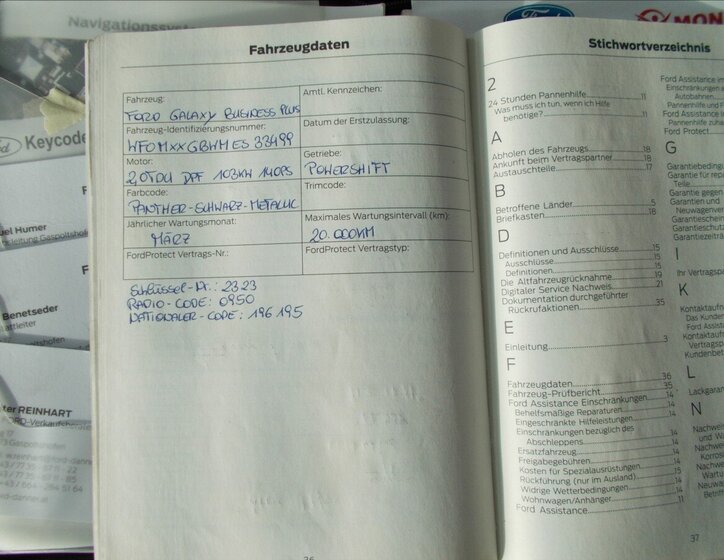 Navigationssystem
Ford
MON
Keycode
Gaspoltshofen
Benetseder
ter REINHART
Fahrzeugdaten
Fahrzeug:
FORD GALAXY BUSINESS PLUS
Amtl. Kennzeichen:
Fahrzeug-Identifizierungsnummer:
WFOMXXGBWMES33499
Datum der Erstzulassung:
Motor:
2,0TDCI DPF 103KW 140PS
Getriebe:
POWERSHIFT
Farbcode:
PANTHER-SCHWARZ-METALLIC
Trimcode:
Jährlicher Wartungsmonat:
MÄRZ
Maximales Wartungsintervall (km):
20.000KM
FordProtect Vertrags-Nr.:
FordProtect Vertragstyp:
Schlüssel-Nr.: 2323
RADIO-CODE: 0950
NATIONALER-CODE: 196195
36
Stichwortverzeichnis
2
24 Stunden Pannenhilfe 11
Was muss ich tun, wenn ich Hilfe
benötige? 11
A
Abholen des Fahrzeugs 18
Ankunft beim Vertragspartner 18
Austauschteile 17
B
Betroffene Länder 5
Briefkasten 18
D
Definitionen und Ausschlüsse 15
Ausschlüsse 15
Definitionen 15
Die Altfahrzeugrücknahme 19
Digitaler Service Nachweis 21
Dokumentation durchgeführter
Rückrufaktionen 35
E
Einleitung 3
F
Fahrzeugdaten 36
Fahrzeug-Prüfbericht 35
Ford Assistance Einschränkungen 14
Behelfsmäßige Reparaturen 14
Eingeschränkte Hilfeleistungen 14
Einschränkungen bezüglich des
Abschleppens 14
Ersatzfahrzeug 14
Freigabegebühren 14
Kosten für Spezialausrüstungen 15
Rückführung (nur im Ausland) 15
Widrige Wetterbedingungen 14
Wohnwagen/Anhänger 14
Ford Assistance 11
Ford Assistance
Einschränkungen
Autobahnen
Pannenhilfe
Ford Assistance
Pannenhilfe
Ford Protect
G
Garantie für
Teile
Garantie gegen
Garantien und
I
Ihr
K
L
N
37